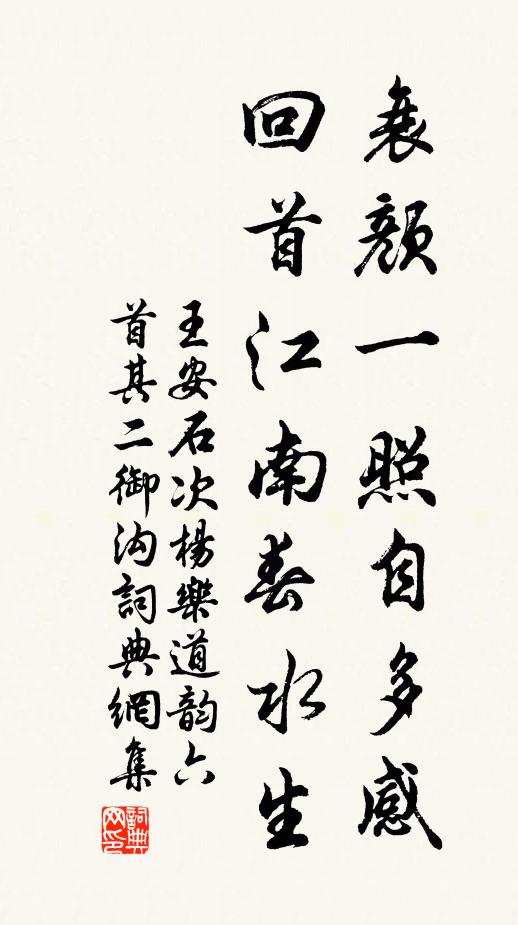 衰顏一照自多感
回首江南春水生
王安石次楊樂道韵六
首其二御沟詞典網集
詞典
网印